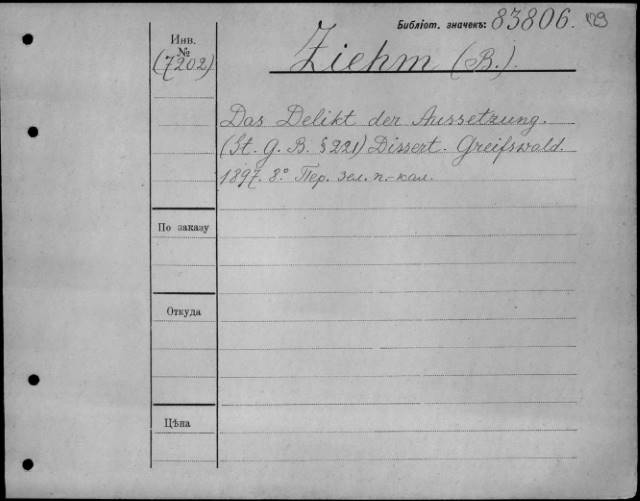 Библіот. значекъ: 83806.
Инв.
№
(7202)
Ziehm (B.).
Das Delikt der Aussetzung.
(St. G. B. § 221) Dissert. Greifswald.
1897. 8.° Пер. зел. п.-кал.
По заказу
Откуда
Цѣна